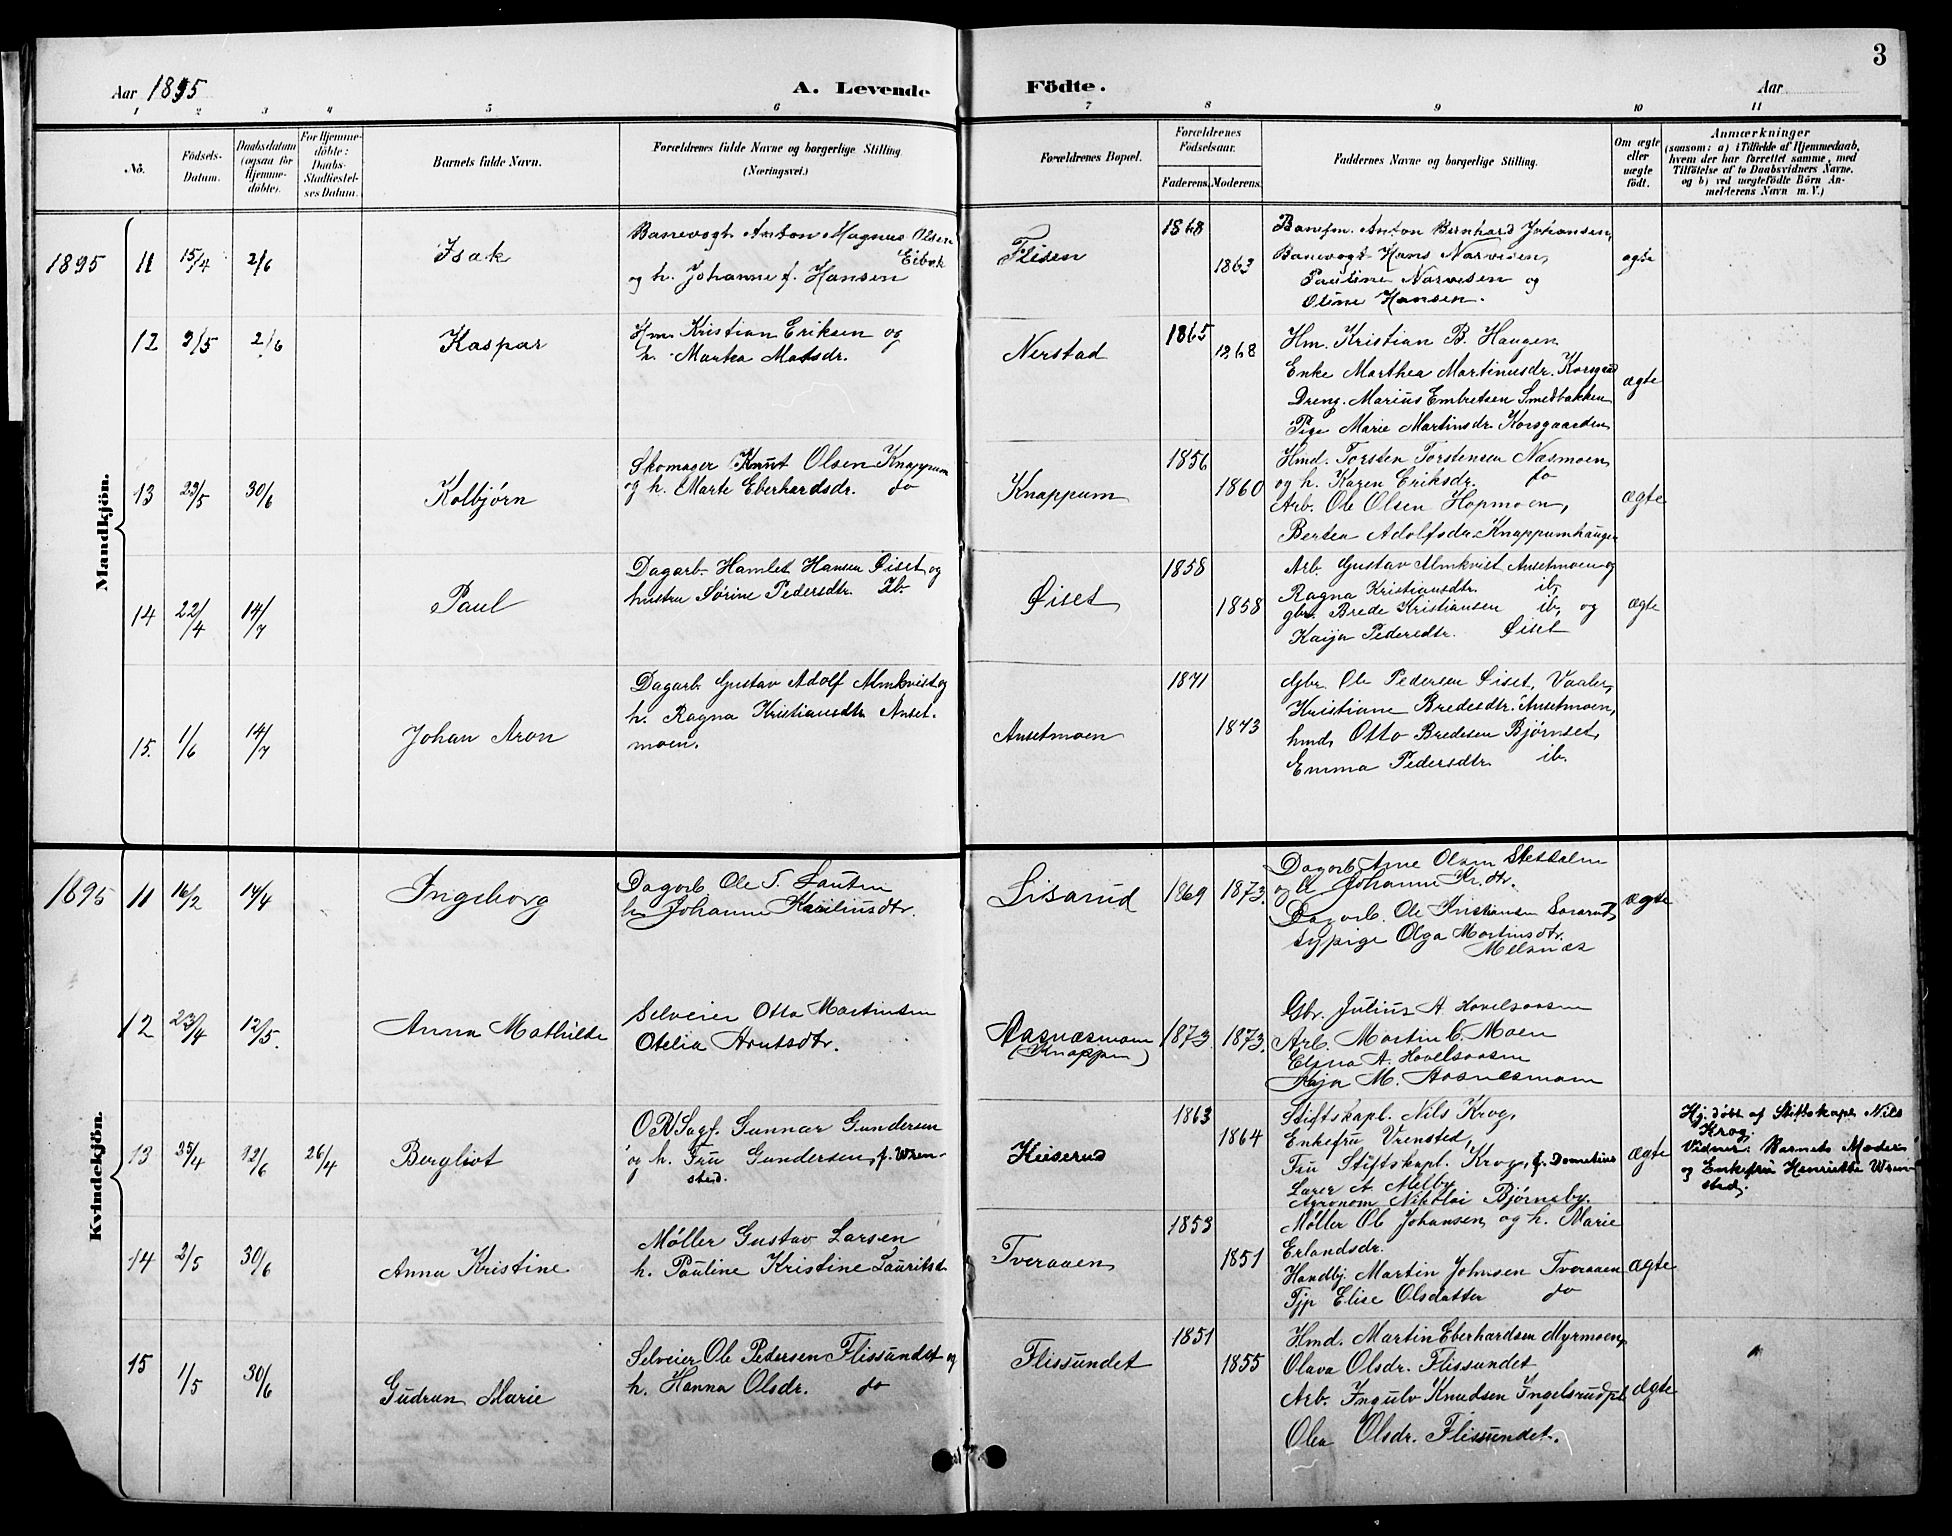 3
Aar 1895
A. Levende Födte.
Aar
1 2 3 4 5 6 7 8 9 10 11
No.
Födsels-Datum.
Daabsdatum (ogsaa for Hjemme-döbte).
For Hjemme-döbte: Daabs-Stadfæstelses Datum.
Barnets fulde Navn.
Forældrenes fulde Navne og borgerlige Stilling. (Næringsvei.)
Forældrenes Bopæl.
Forældrenes Födselsaar.
Faderens. Moderens.
Faddernes Navne og borgerlige Stilling.
Om ægte eller uægte födt.
Anmærkninger
(saasom: a) i Tilfælde af Hjemmedaab, hvem der har forrettet samme, med Tilföielse af to Daabsvidners Navne, og b) ved uægtefödte Börn Anmelderens Navn m. V.)
Mandkjön.
1895 11 15/4 2/6 Isak
Banevogt Anton Magnus Olsen Eibæk
og h. Johanne f. Hansen
Flisen 1868 1863
Banefm. Anton Bernhard Johansen,
Banevogt Hans Narvesen,
Pauline Narvesen og
Oline Hansen.
ægte
12 9/5 2/6 Kaspar
Hm. Kristian Eriksen og
h. Martea Matsdr.
Nerstad 1865 1868
Hm. Kristian B. Haugen
Enke Marthea Martinusdr. Korsgaard
Dreng. Marius Embretsen Smedbakken
Pige Marie Martinsdr. Korsgaarden
ægte
13 23/5 30/6 Kolbjørn
Skomager Knut Olsen Knappum
og h. Marte Eberhardsdr. do
Knappum 1856 1860
Hmd. Torsten Torstensen Næsmoen
og h. Karen Eriksdr. do
Arb. Ole Olsen Hopmoen,
Bertea Adolfsdr. Knappumhaugen
ægte
14 22/4 14/7 Paul
Dagarb. Hamlet Hansen Øiset og
hustru Sørine Pedersdtr. Ib.
Øiset 1858 1858
Arb. Gustav Almkvist Ansetmoen og
Ragna Kristiansdtr. ib,
gbr. Brede Kristiansen ib, og
Kaija Pedersdtr. Øiset
ægte
15. 1/6 14/7 Johan Aron
Dagarb. Gustav Adolf Almkvist og
h. Ragna Kristiansdtr. Anset-
moen.
Ansetmoen 1871 1873
Gbr. Ole Pedersen Øiset, Vaaler,
Kristiane Bredesdtr. Ansetmoen,
hmd, Otto Bredesen Bjørnset,
Emma Pedersdtr. ib.
Kvindekjön.
1895 11 16/2 14/4 Ingeborg
Dagarb Ole S. Lauten
h. Johanne Kariliusdtr.
Lisarud 1869 1873.
Dagarb Arne Olsen
og h Johanne Kr.dtr.
Dagarb. Ole Kristiansen
Sypige Olga Martinsdtr.
Melsnæs
ægte
12 23/4 12/5. Anna Mathilde
Selveier Otto Martinsen
Otelia Arntsdtr.
Aasnæsmoen
(Knappen)
1873. 1873.
Gbr. Julius A. Hovelsaasen
Arb. Martin C. Moen
Elina A. Hovelsaasen
Kaja M. Aasnæsmoen
13 25/4 12/6 26/4 Bergliot
O R Sagf. Gunnar Gundersen
og h. Fru Gundersen, f. Wren-
sted.
Keiserud 1863 1864
Stiftskapl. Nils Krog,
Enkefru Vrensted,
Fru Stiftskapl. Krog, f. Dometius
Lærer A. Melby
Agronom Nikolai Bjørneby.
ægte
Hj. døbt af Stiftskapl. Nils
Krog.
Vidner: Barnets Moder
og Enkefru Henriette Wren-
sted.
14 2/5 30/6 Anna Kristine
Møller Gustav Larsen
h. Pauline Kristine Lauritsd.
Tveraaen 1853 1851
Møller Ole Johansen og h. Marie
Erlandsdr.
Handlbj. Martin Johnsen Tveraaen
Tjp Elise Olsdatter do
ægte
15 1/5 30/6 Gudrun Marie
Selveier Ole Pedersen Flissundet og
h. Hanna Olsdr. do
Flissundet 1851 1855
Hmd. Martin Eberhardsen Myrmoen,
Olava Olsdr. Flissundet
Arb. Ingulv Knudsen Ingelsrudpl.
Olea Olsdr. Flissundet.
ægte